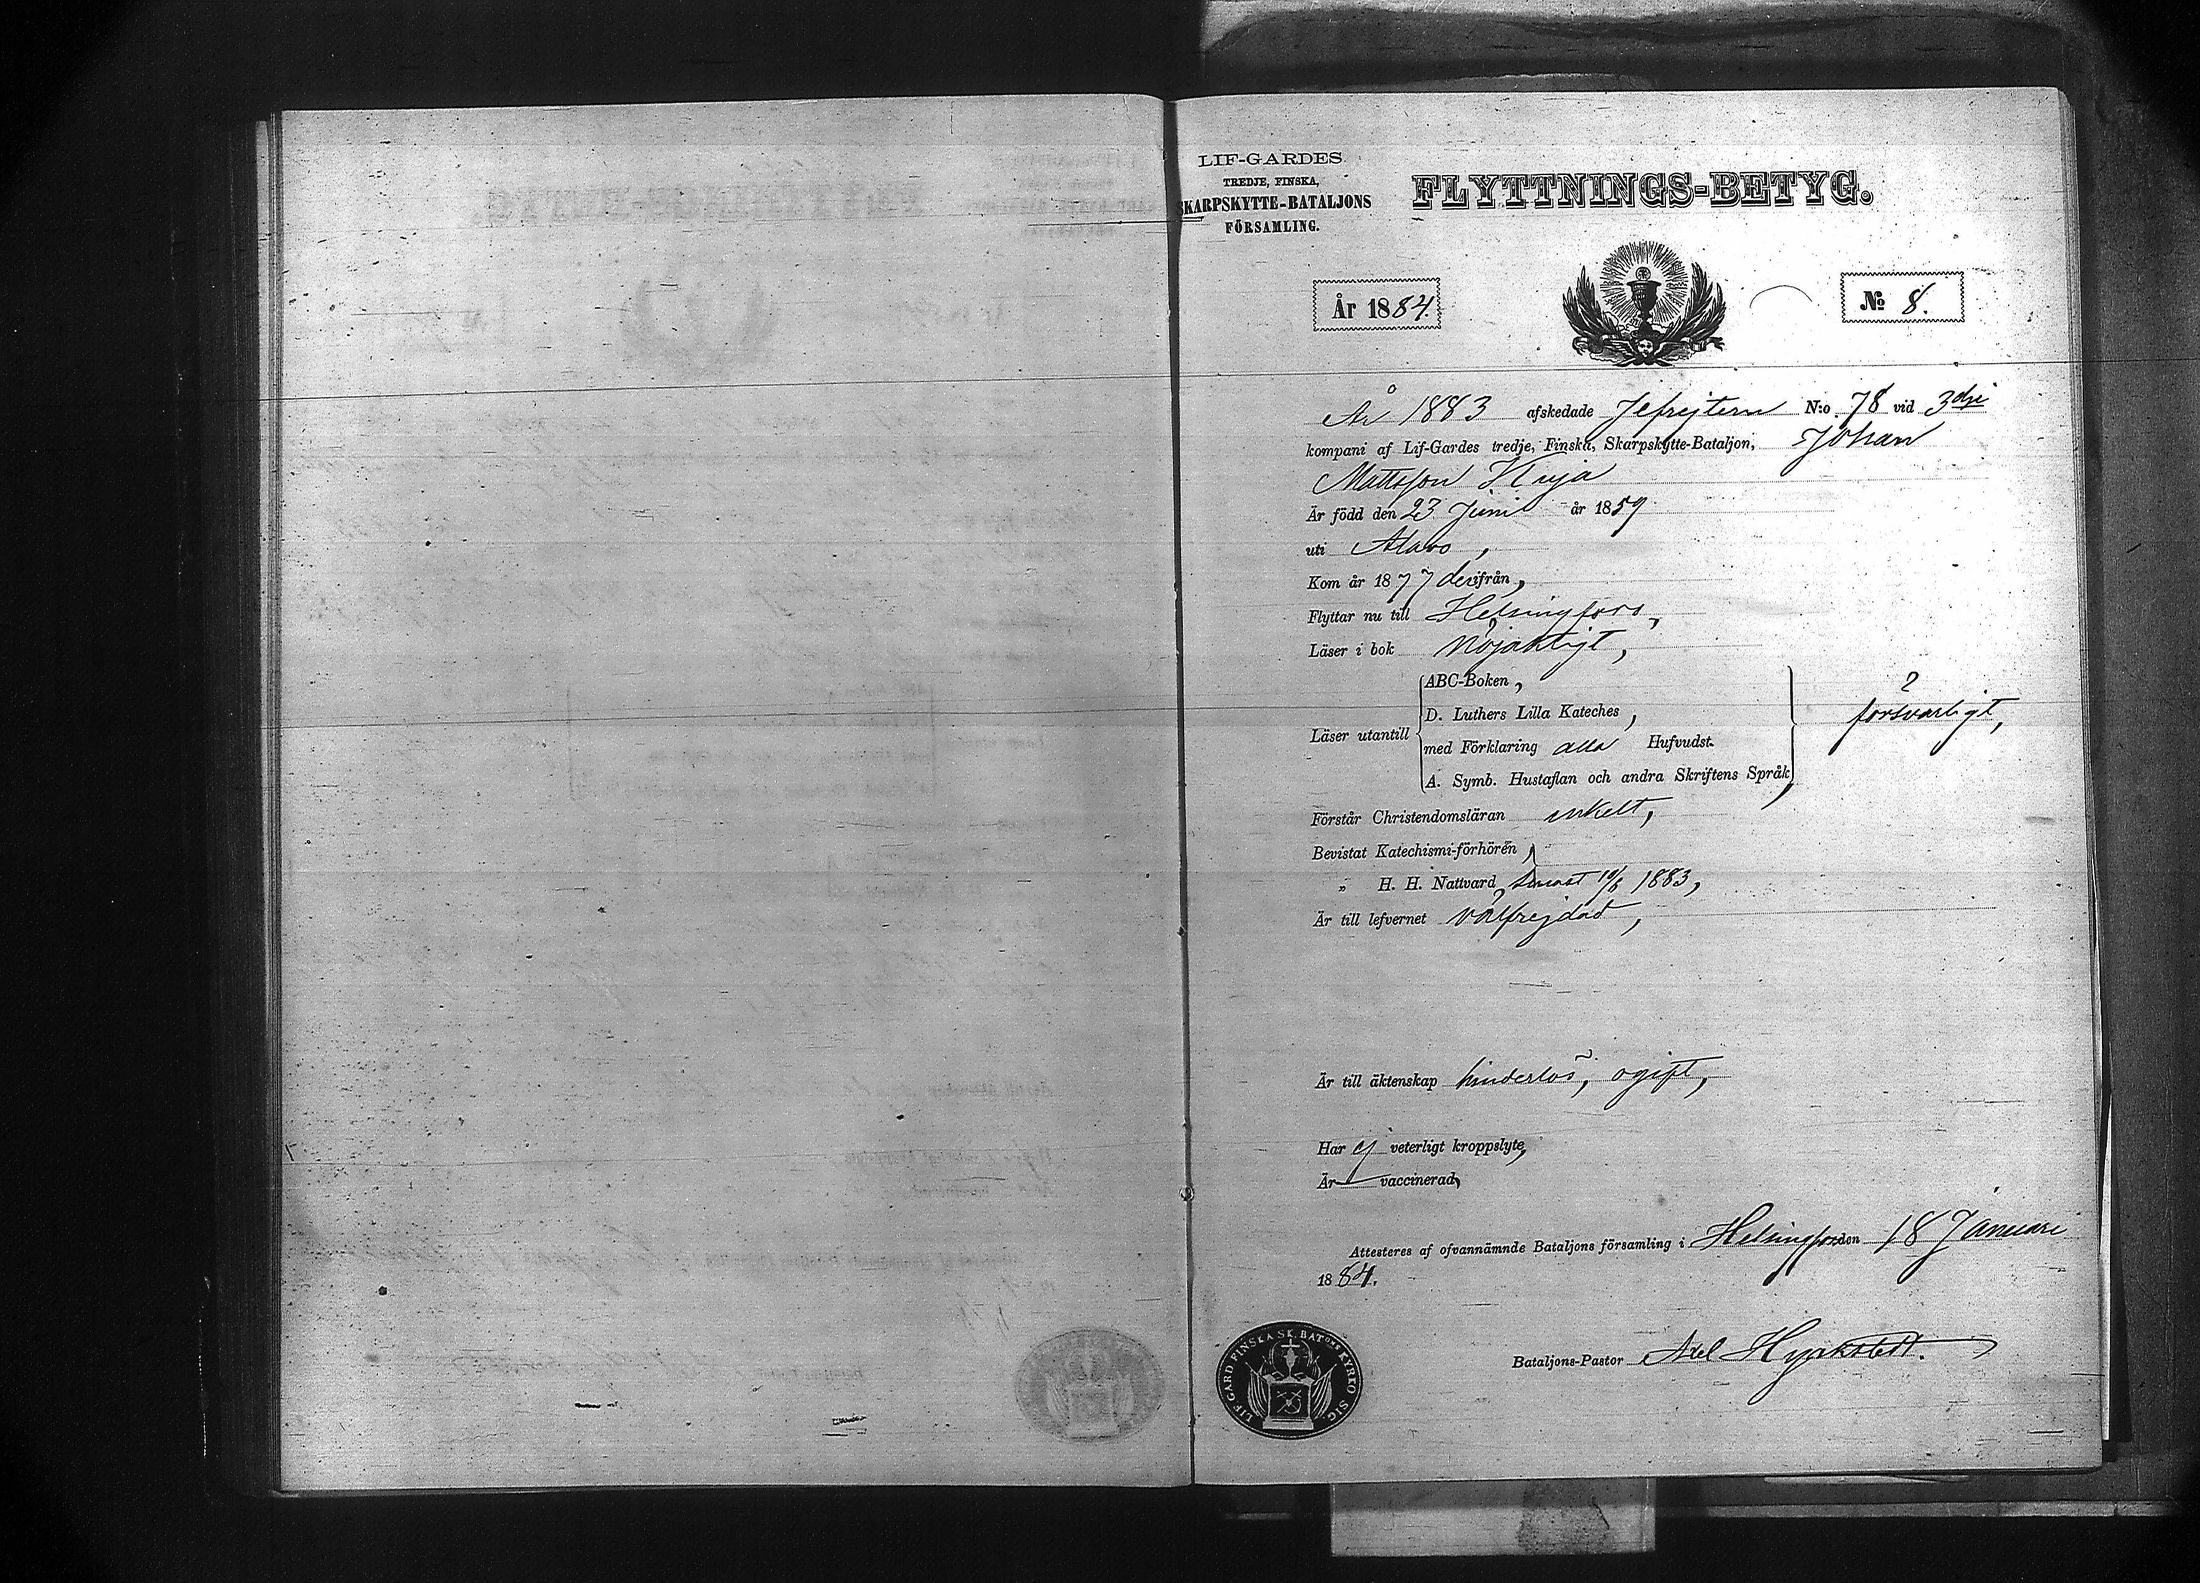 LIF-GARDES
TREDJE, FINSKA,
SKARPSKYTTE-BATALJONS
FÖRSAMLING.
FLYTTNINGS-BETYG.
År 1884.
No 8.
År 1883 afskedade Jefrejtern N:o 78 vid 3dje
kompani af Lif-Gardes tredje, Finska, Skarpskytte-Bataljon, Johan
Mattsson Kuja
Är född den 23 Juni år 1859
uti Alavo,
Kom år 1877 derifrån,
Flyttar nu till Helsingfors,
Läser i bok nöjaktigt,
Läser utantill
ABC-Boken,
D. Luthers Lilla Kateches,
med Förklaring alla Hufvudst.
A. Symb. Hustaflan och andra Skriftens Språk,
försvarligt,
Förstår Christendomsläran enkelt,
Bevistat Katechismi-förhören,
„ H. H. Nattvard, senast 10/6 1883,
Är till lefvernet välfrejdad,
Är till äktenskap hinderlös, ogift,
Har ej veterligt kroppslyte,
Är vaccinerad,
Attesteres af ofvannämnde Bataljons församling i Helsingfors den 18 Januari
1884.
Bataljons-Pastor Axel Hyrkstedt.
LIF. GARD FINSKA SK. BATONS KYRKO SIG.